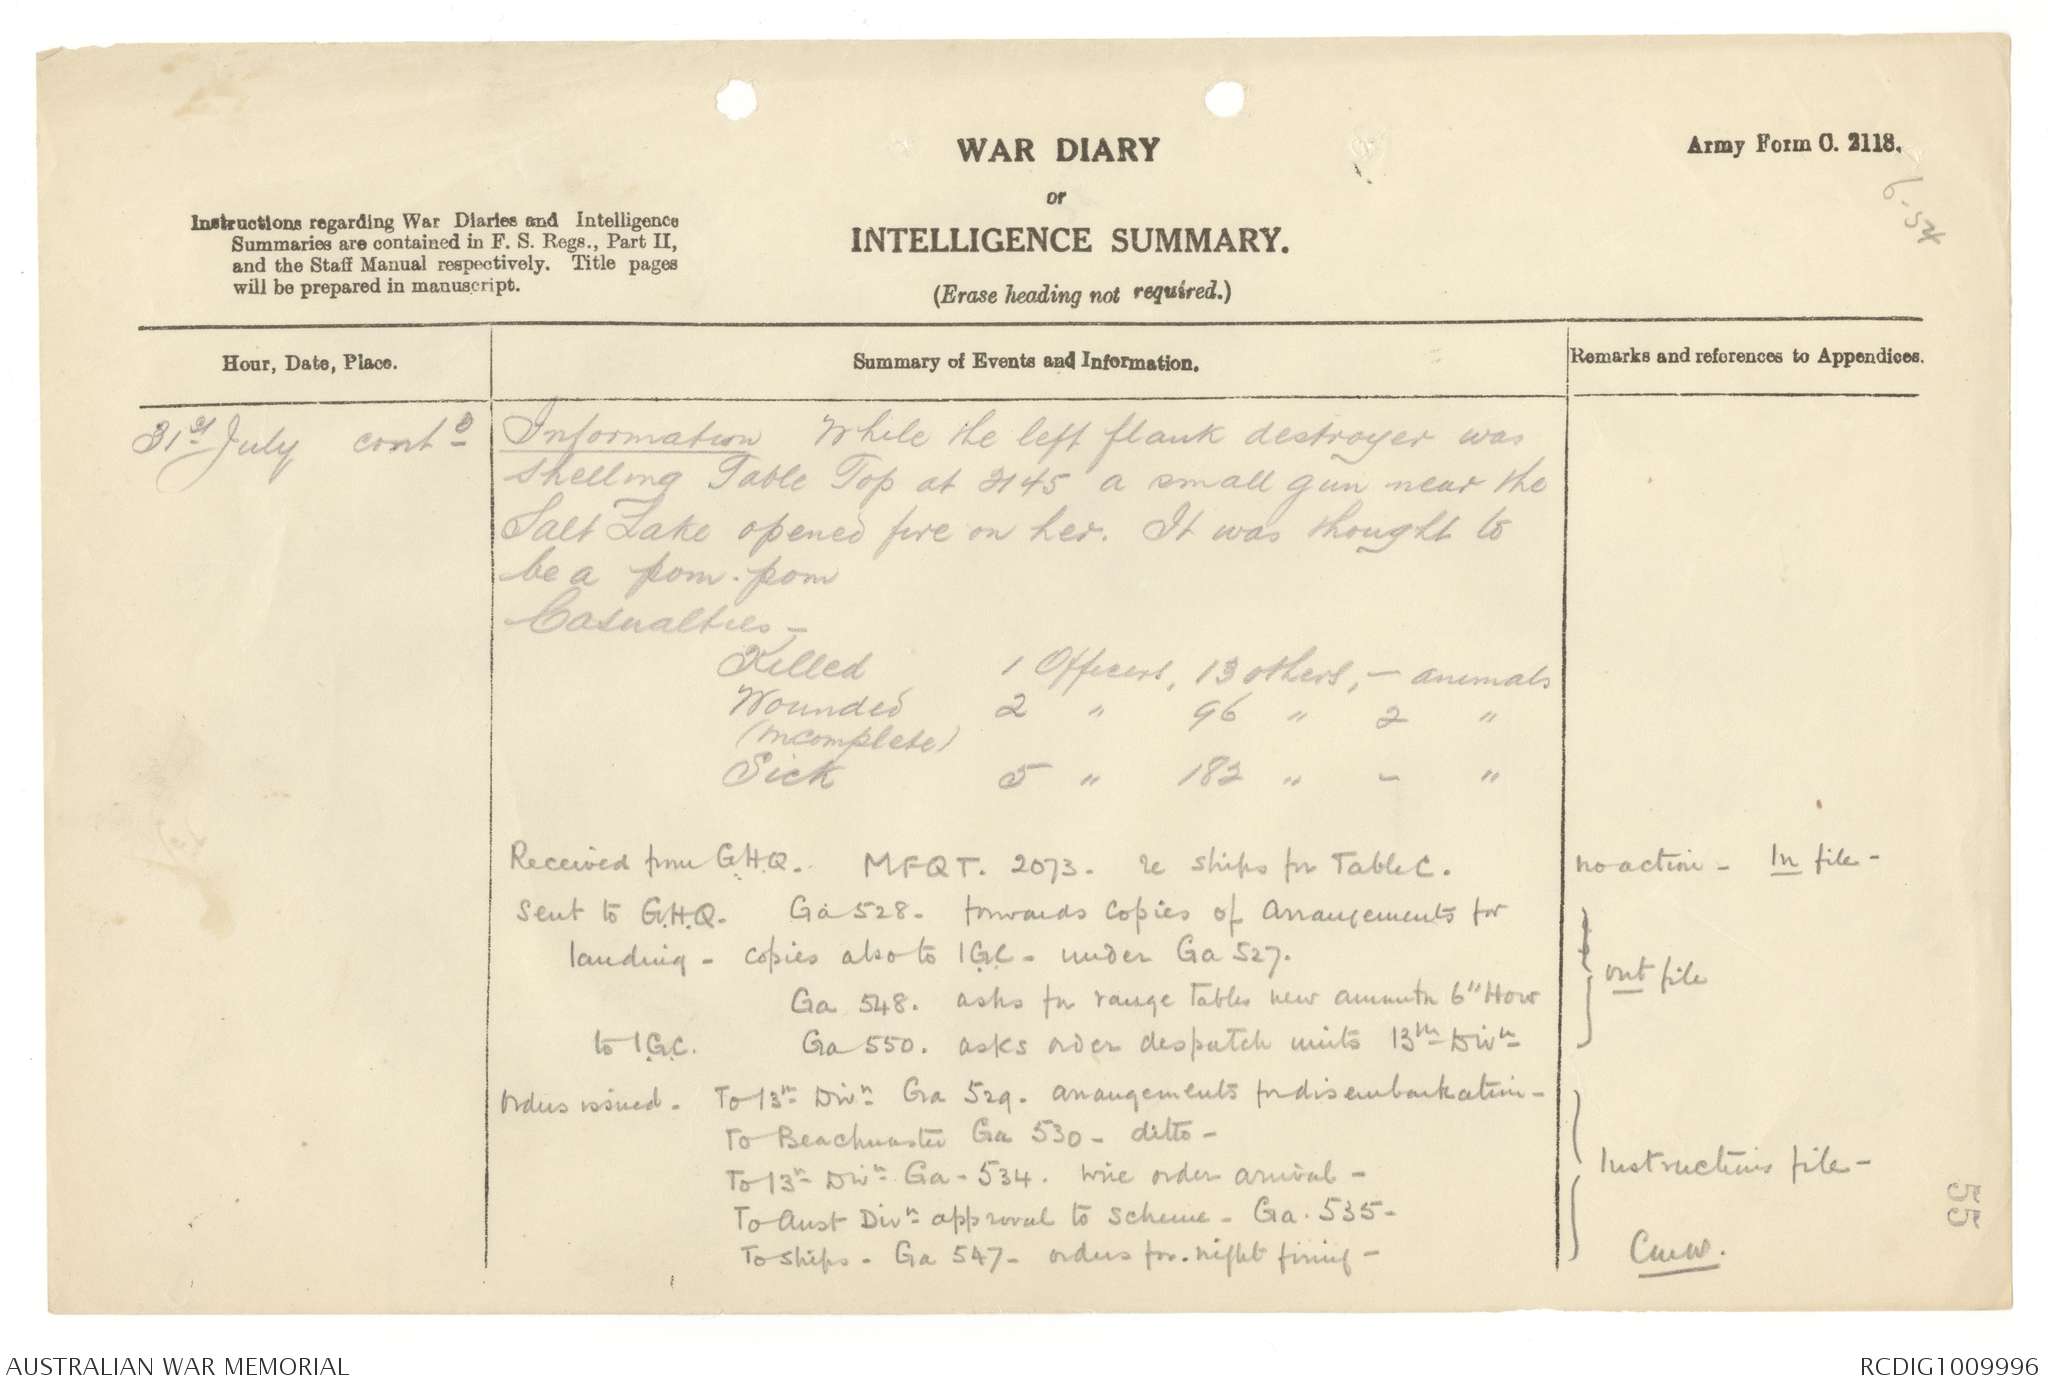 WAR DIARY
or
INTELLIGENCE SUMMARY.
(Erase heading not required.)
Army Form C. 2118.
Instructions regarding War Diaries and Intelligence
Summaries are contained in F. S. Regs., Part II,
and the Staff Manual respectively. Title pages
will be prepared in manuscript.
Hour, Date, Place.
Summary of Events and Information.
Remarks and references to Appendices.
31st July contd
Information While the left flank destroyer was
shelling Table Top at 2145 a small gun near the
Salt Lake opened fire on her. It was thought to
be a pom-pom
Casualties -
Killed 1 Officers, 13 others, - animals
Wounded 2 " 96 " 2 "
(incomplete)
Sick 5 " 182 " - "
Received from G.H.Q. MFQT. 2073. re ships for Table C.
no action - In file -
Sent to G.H.Q. Ga 528. forwards copies of arrangements for
landing - copies also to I.G.C. - under Ga 527.
out file
Ga 548. asks for range tables new ammutn 6" How
to I.G.C. Ga 550. asks order despatch units 13th Divn
Orders issued. To 13th Divn Ga 529. arrangements for disembarkation -
To Beachmaster Ga 530 - ditto -
To 13th Divn Ga - 534. wire order arrival -
Instructions file -
To Aust Divn approval to scheme - Ga. 535 -
To ships - Ga 547 - orders for night firing -
55
AUSTRALIAN WAR MEMORIAL
RCDIG1009996